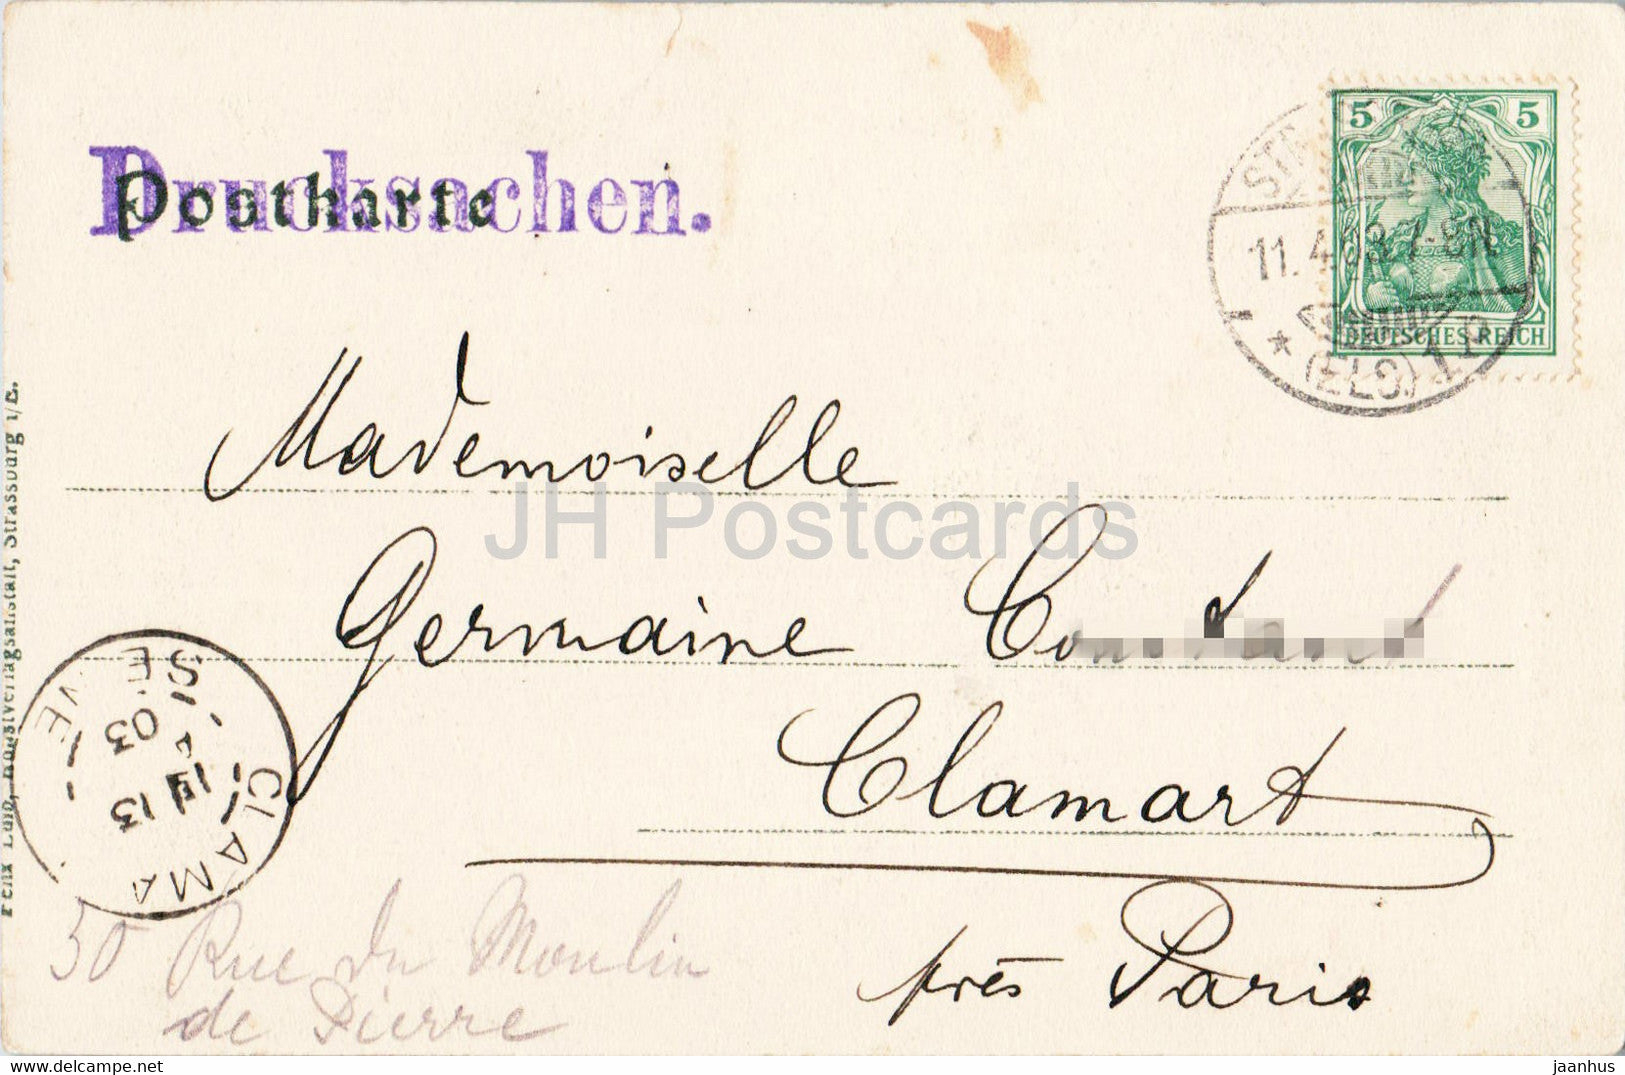 Drucksachen.
Postkarte
5 5
DEUTSCHES REICH
11.4.03.7-8N
* (ELS) 1
Mademoiselle
JH Postcards
Germaine
Clamart
près Paris
50 Rue du Moulin
de Pierre
CLAMA
SE NE
13
03
Felix Luib, Kunstverlagsanstalt, Strassburg i/E.
jaanhus
www.delcampe.net